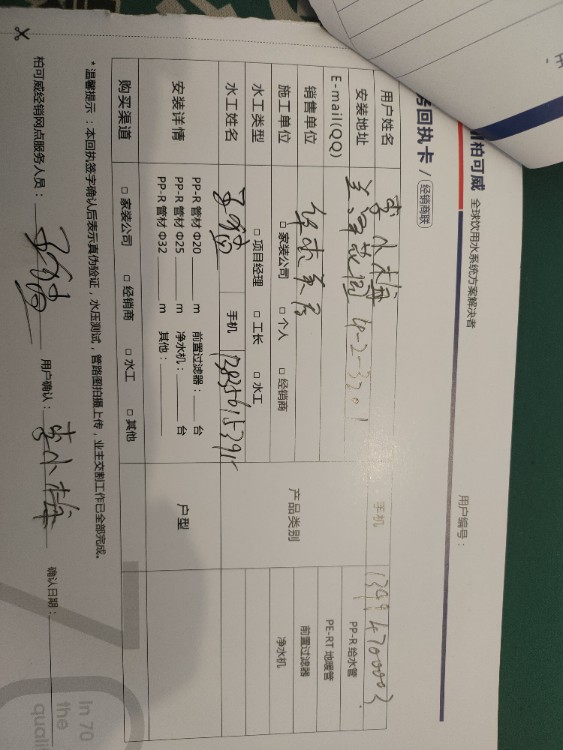 柏可威 全球饮用水系统方案解决者
回执卡 / 经销商联
用户编号：
用户姓名 李小梅 手机
安装地址 4-2-3201
E-mail(QQ)
销售单位
施工单位 □家装公司 □个人 □经销商
产品类别 PP-R 给水管 PE-RT 地暖管 前置过滤器 净水机
水工类型 □项目经理 □工长 □水工
水工姓名 手机
安装详情 PP-R 管材 Φ20 m 前置过滤器： 台
PP-R 管材 Φ25 m 净水机： 台
PP-R 管材 Φ32 m 其他：
户型
购买渠道 □家装公司 □经销商 □水工 □其他
*温馨提示：本回执签字确认后表示真伪验证，水压测试，管路图拍摄上传，业主交割工作已全部完成。
柏可威经销网点服务人员： 用户确认： 李小梅 确认日期：
In 70
the